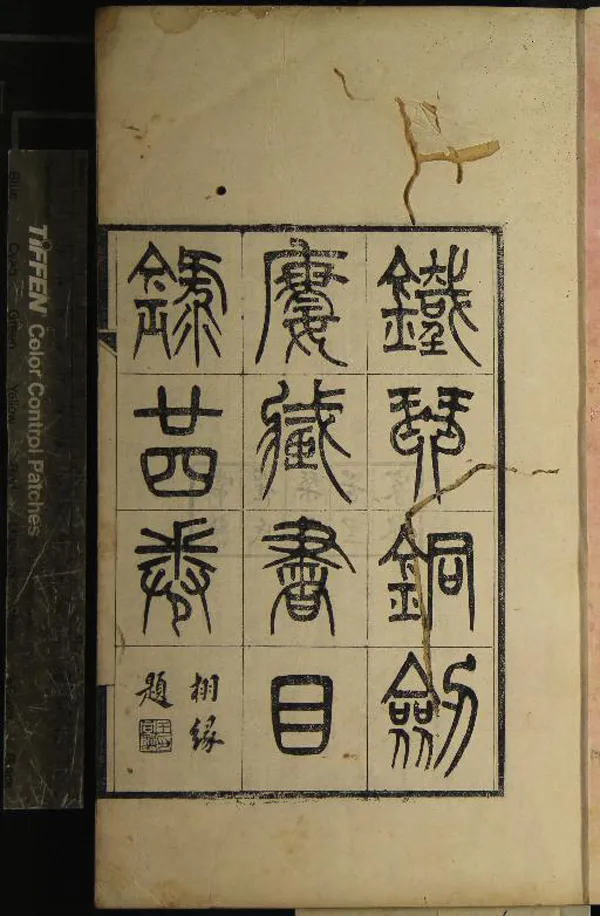 鐵琴銅劍
廔藏書目
錄廿四卷
栩緣
題
TIFFEN Color Control Patches
Blue Cyan Green Yellow